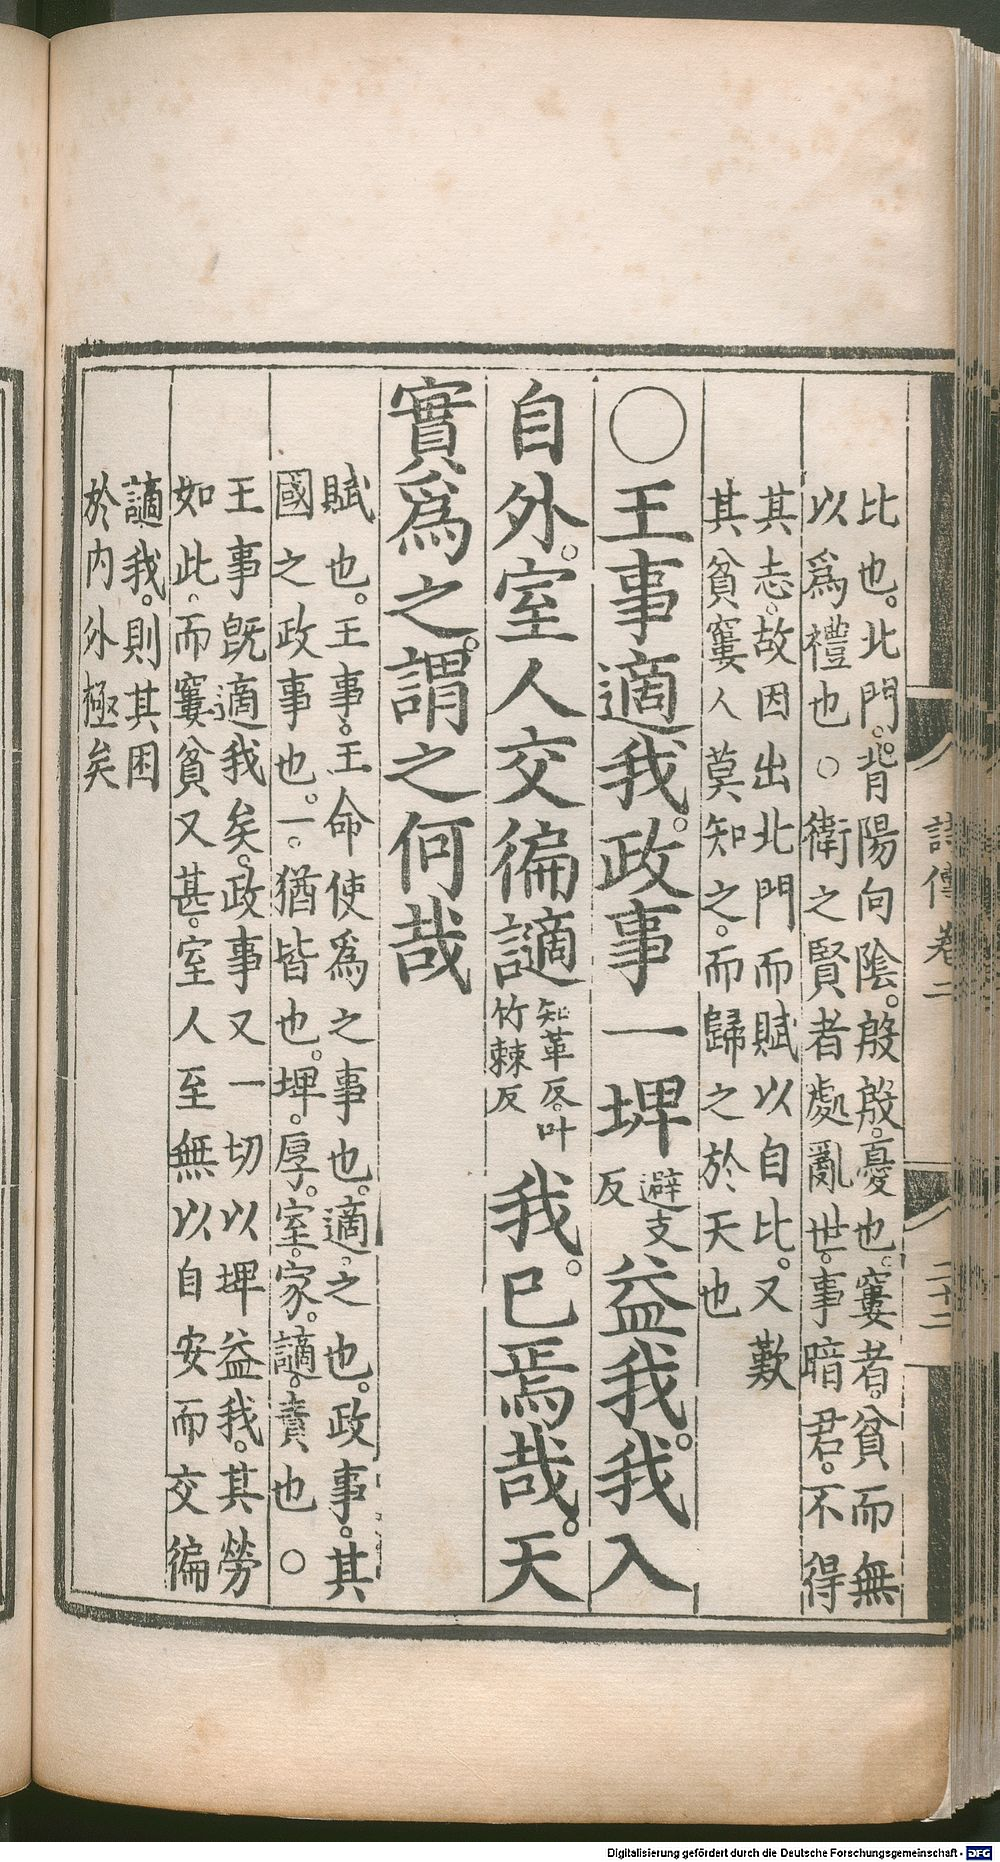 比也。北門。背陽向陰。殷殷。憂也。窶者。貧而無
以爲禮也○衛之賢者處亂世。事暗君。不得
其志。故因出北門而賦以自比。又歎
其貧窶人莫知之。而歸之於天也
○王事適我。政事一埤避支反益我。我入
自外。室人交徧讁知革反。叶竹棘反我。已焉哉。天
實爲之。謂之何哉
賦也。王事。王命使爲之事也。適。之也。政事。其
國之政事也。一。猶皆也。埤。厚。室。家。讁。責也○
王事旣適我矣。政事又一切以埤益我。其勞
如此。而窶貧又甚。室人至無以自安而交徧
讁我。則其困
於內外極矣
詩傳卷二
二十二
Digitalisierung gefördert durch die Deutsche Forschungsgemeinschaft - DFG